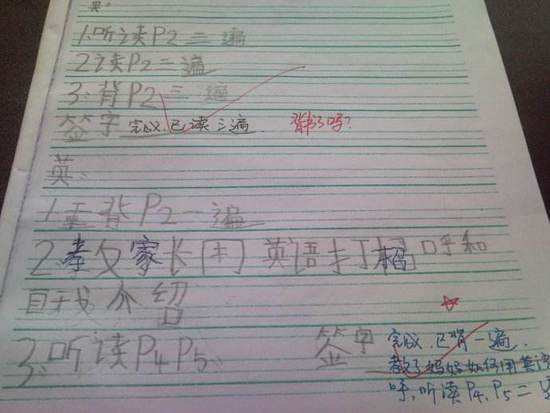 英:
1.听读P2二遍
2.读P2二遍
3.背P2三遍
签字 完成,已读三遍. 背了吗?
英:
1.重背P2一遍
2.教家长用英语打招呼和
自我介绍
3.听读P4P5 签字 完成,已背一遍.
教了妈妈如何用英语
呼,听读P4,P5二